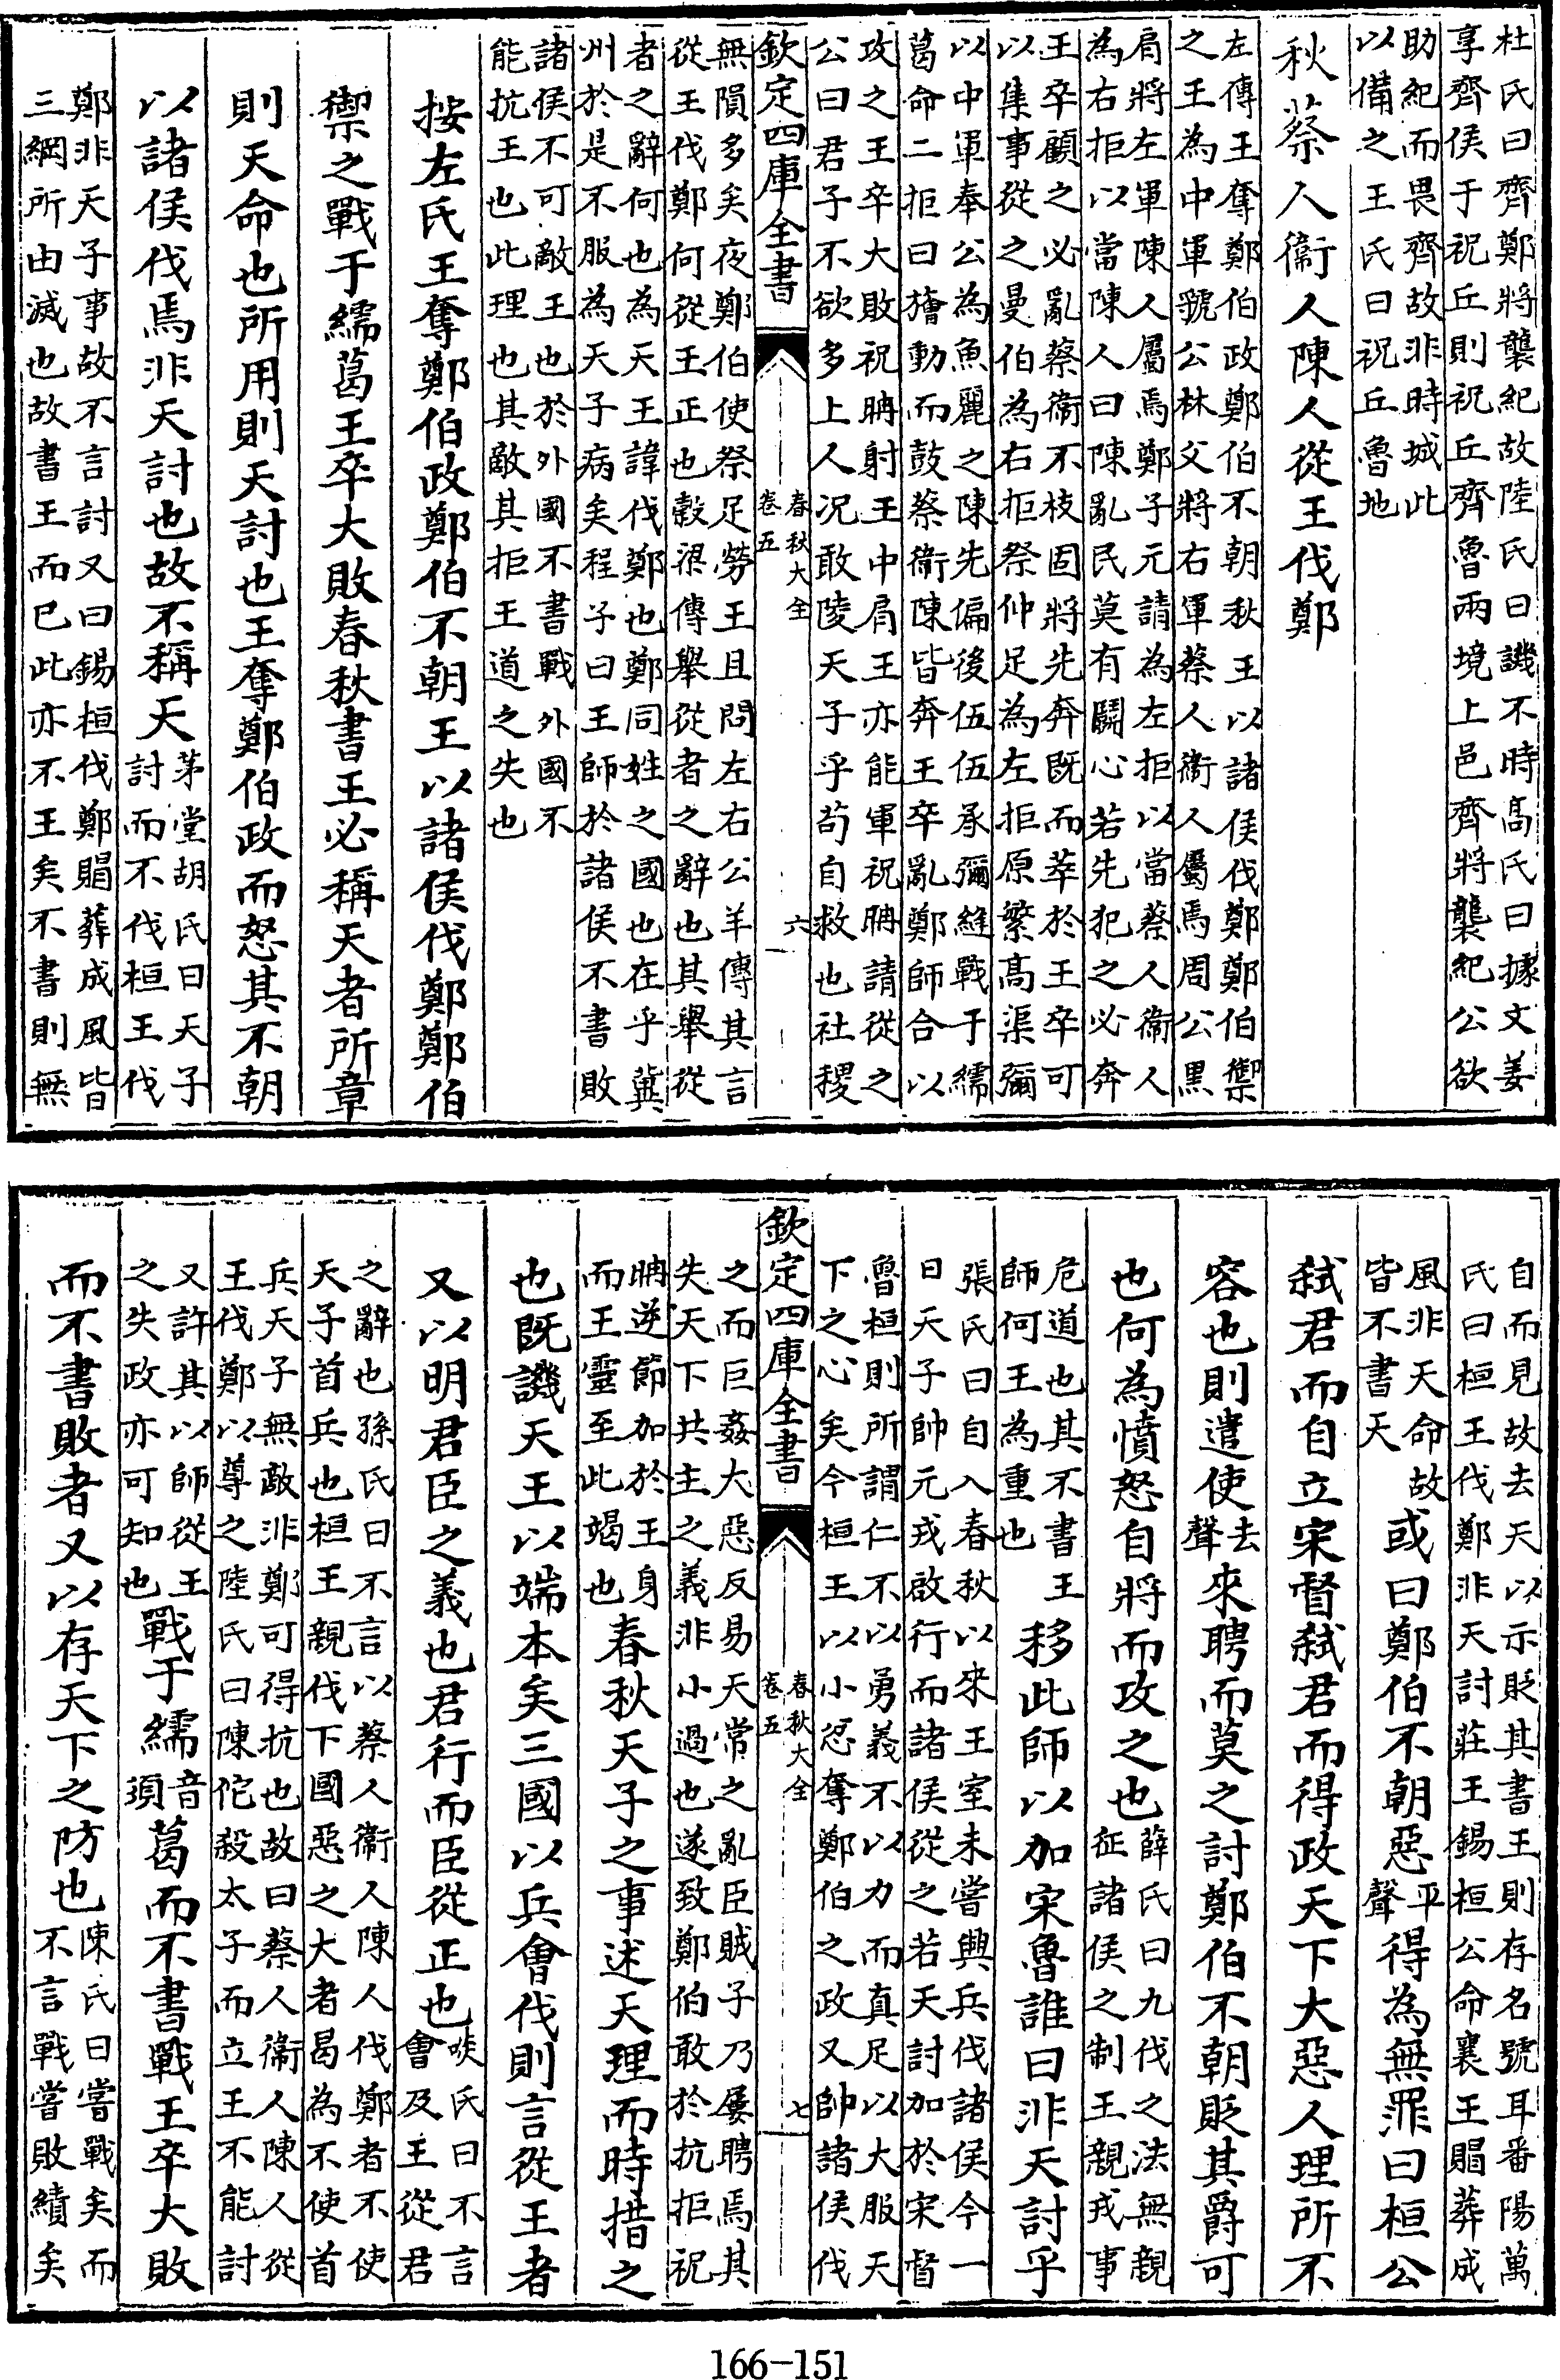 杜氏曰齊鄭將襲紀故陸氏曰譏不時髙氏曰據文姜
享齊侯于祝丘則祝丘齊魯兩境上邑齊將襲紀公欲
助紀而畏齊故非時城此
以備之王氏曰祝丘魯地
秋蔡人衞人陳人從王伐鄭
左傳王奪鄭伯政鄭伯不朝秋王以諸侯伐鄭鄭伯禦
之王為中軍虢公林父將右軍蔡人衞人屬焉周公黒
肩將左軍陳人屬焉鄭子元請為左拒以當蔡人衞人
為右拒以當陳人曰陳亂民莫有鬭心若先犯之必奔
王卒顧之必亂蔡衞不枝固將先奔既而萃於王卒可
以集事從之曼伯為右拒祭仲足為左拒原繁髙渠彌
以中軍奉公為魚麗之陳先偏後伍伍承彌縫戰于繻
葛命二拒曰旝動而鼓蔡衞陳皆奔王卒亂鄭師合以
攻之王卒大敗祝聃射王中肩王亦能軍祝聃請從之
公曰君子不欲多上人况敢陵天子乎苟自救也社稷
欽定四庫全書
春秋大全
卷五
六
無隕多矣夜鄭伯使祭足勞王且問左右公羊傳其言
從王伐鄭何從王正也榖梁傳舉從者之辭也其舉從
者之辭何也為天王諱伐鄭也鄭同姓之國也在乎冀
州於是不服為天子病矣程子曰王師於諸侯不書敗
諸侯不可敵王也於外國不書戰外國不
能抗王也此理也其敵其拒王道之失也
按左氏王奪鄭伯政鄭伯不朝王以諸侯伐鄭鄭伯
禦之戰于繻葛王卒大敗春秋書王必稱天者所章
則天命也所用則天討也王奪鄭伯政而怒其不朝
以諸侯伐焉非天討也故不稱天茅堂胡氏曰天子
討而不伐桓王伐
鄭非天子事故不言討又曰錫桓伐鄭賵葬成風皆
三綱所由滅也故書王而已此亦不王矣不書則無
自而見故去天以示貶其書王則存名號耳番陽萬
氏曰桓王伐鄭非天討莊王錫桓公命襄王賵葬成
風非天命故
皆不書天或曰鄭伯不朝惡平聲得為無罪曰桓公
弑君而自立宋督弑君而得政天下大惡人理所不
容也則遣使去聲來聘而莫之討鄭伯不朝貶其爵可
也何為憤怒自將而攻之也薛氏曰九伐之法無親
征諸侯之制王親戎事
危道也其不書王
師何王為重也移此師以加宋魯誰曰非天討乎
張氏曰自入春秋以來王室未嘗興兵伐諸侯今一
曰天子帥元戎啟行而諸侯從之若天討加於宋督
魯桓則所謂仁不以勇義不以力而真足以大服天
下之心矣今桓王以小忿奪鄭伯之政又帥諸侯伐
欽定四庫全書
春秋大全
卷五
七
之而巨姦大惡反易天常之亂臣賊子乃屢聘焉其
失天下共主之義非小過也遂致鄭伯敢於抗拒祝
聃逆節加於王身
而王靈至此竭也春秋天子之事述天理而時措之
也既譏天王以端本矣三國以兵會伐則言從王者
又以明君臣之義也君行而臣從正也啖氏曰不言
會及王從君
之辭也孫氏曰不言以蔡人衞人陳人伐鄭者不使
天子首兵也桓王親伐下國惡之大者曷為不使首
兵天子無敵非鄭可得抗也故曰蔡人衞人陳人從
王伐鄭以尊之陸氏曰陳佗殺太子而立王不能討
又許其以師從王
之失政亦可知也戰于繻音須葛而不書戰王卒大敗
而不書敗者又以存天下之防也陳氏曰嘗戰矣而
不言戰嘗敗績矣
166-151